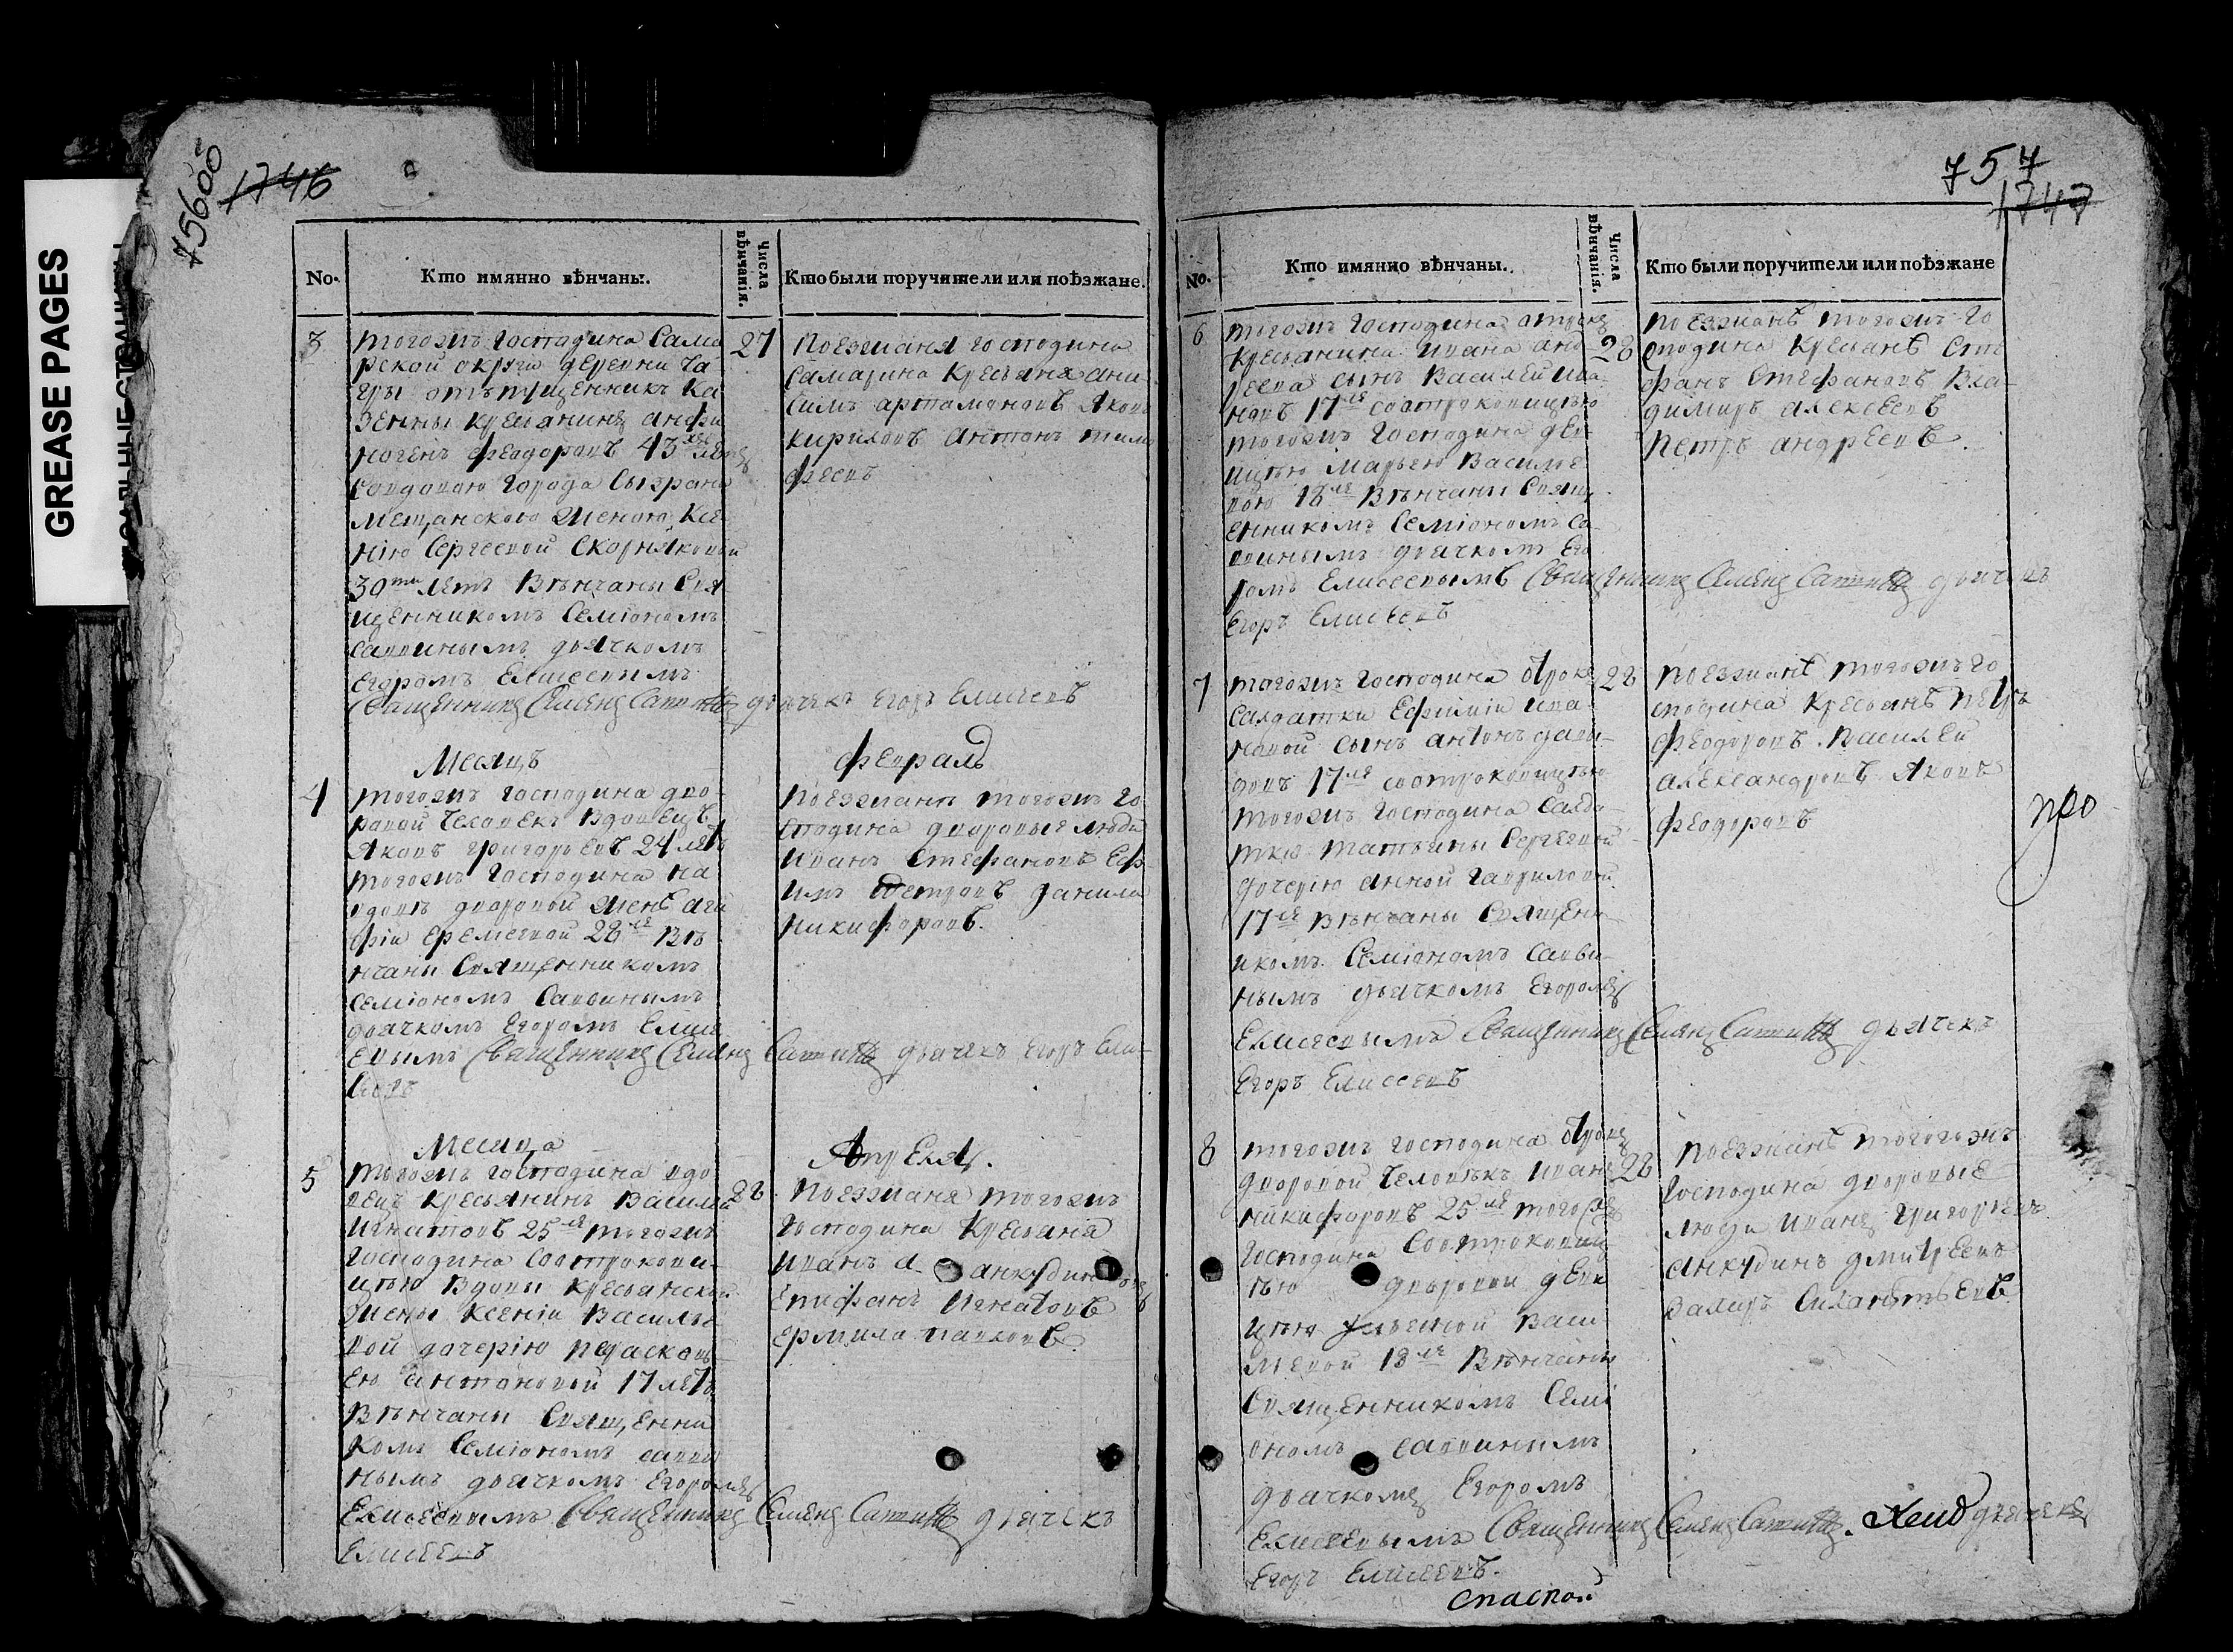 GREASE PAGES
756об
1746
No.
Кто имянно вѣнчаны.
Числа вѣнчанія.
Кто были поручители или поѣзжане.
3
тогожъ господина Сама
рской округи деревни Ча
гры отъпущенникъ Ка
зенны кресьянинъ анфи
ногенъ феодоровъ 43
города Сызрана
мещанскою женою Ксе
нiю Сергеевой Скорняковой
30ти летъ Вѣнчаны Свя
щенникомъ Семiономъ
Саввинымъ дьячкомъ
Егоромъ Елисеевимъ
27
Поезжаня господина
Самарина Кресьяня ани
симъ артамоновъ Яковъ
кириловъ антонъ тимо
феевъ
Священникъ Семенъ Саввинъ дьячекъ Егоръ Елисеевъ
Месяцъ
февраль
4
тогожъ господина дво
ровой Человекъ вдовецъ
Яковъ григорьевъ 24 летъ
тогожъ Господина на
вдовъ дворовой жене ага
фiи Еремеевой 28 ле Вѣ
нчаны Священникомъ
Семiономъ Саввинымъ
дьячкомъ Егоромъ Елисе
евымъ Священникъ Семенъ Саввинъ дьячекъ Егоръ Ели
сеевъ
поезжанъ тогожъ го
сподина дворовые люди
Иванъ Стефановъ Еф
имъ Петровъ данила
никифоровъ.
Месяца
Апреля.
5
тогожъ господина вдо
вецъ кресьянинъ Василей
Игнатовъ 25 ле тогожъ
господина соотрокови
цыю Вдовы кресьянской
жены Ксенiи Василье
вой дочерiю прасковь
ею антоновой 17 летъ
Вѣнчаны Священни
комъ Семiономъ савви
нымъ дьячкомъ Егоромъ
Елисеевымъ Священникъ Семенъ Саввинъ дьячекъ
Елисеевъ
28
поезжаня тогожъ
господина Кресьяня
Иванъ анкудиновъ
Епифанъ Игнатовъ
Ермила павловъ
757
1747
No.
Кто имянно вѣнчаны.
Числа вѣнчанія.
Кто были поручители или поѣзжане
6
тогожъ господина отрокъ
кресьянина ивана анд
реева сынъ Василей ива
новъ 17 ле соотроковицыю
тогожъ господина дев
ицыю Марьею Василье
вою 18 ле Вѣнчаны Свящ
енникомъ Семiономъ Са
ввинымъ дьячкомъ Его
ромъ Елисеевымъ Священникъ Семенъ Саввинъ дьячекъ
Егоръ Елисеевъ
28
поезжанѣ тогожъ го
сподина Кресьянѣ Сте
фанъ Стефановъ Вла
димиръ алексеевъ
петръ андреевъ.
7
тогожъ господина отрокъ
Салдатки Ефимiи ива
новой сынъ антонъ дави
довъ 17 ле соотроковицыю
тогожъ господина салда
тки татьяны Сергеевой
дочерiю анной Гавриловой
17 ле вѣнчаны Священ
икомъ Семiономъ Савви
нымъ дьячкомъ Егоромъ
Елисеевымъ Священникъ Семенъ Саввинъ дьячекъ
Егоръ Елисеевъ
28
поезжанѣ тогожъ го
сподина Кресьянѣ петръ
феодоровъ. Василей
александровъ Яковъ
феодоровъ
8
тогожъ господина отрокъ
дворовой Человѣкъ иванъ
никифоровъ 25 ле тогожъ
господина соотроковиц
ыю дворовой деви
цыю Ульяной Васи
льевой 18 ле Вѣнчаны
Священникомъ Семi
ономъ саввинымъ
дьячкомъ Егоромъ
Елисеевымъ Священникъ Семенъ Саввинъ. дьячекъ
Егоръ Елисеевъ.
28
поезжанѣ тогожъ
господина дворовые
люди иванъ григорьевъ
анкудинъ дмитреевъ
Силантьевъ
Спаской